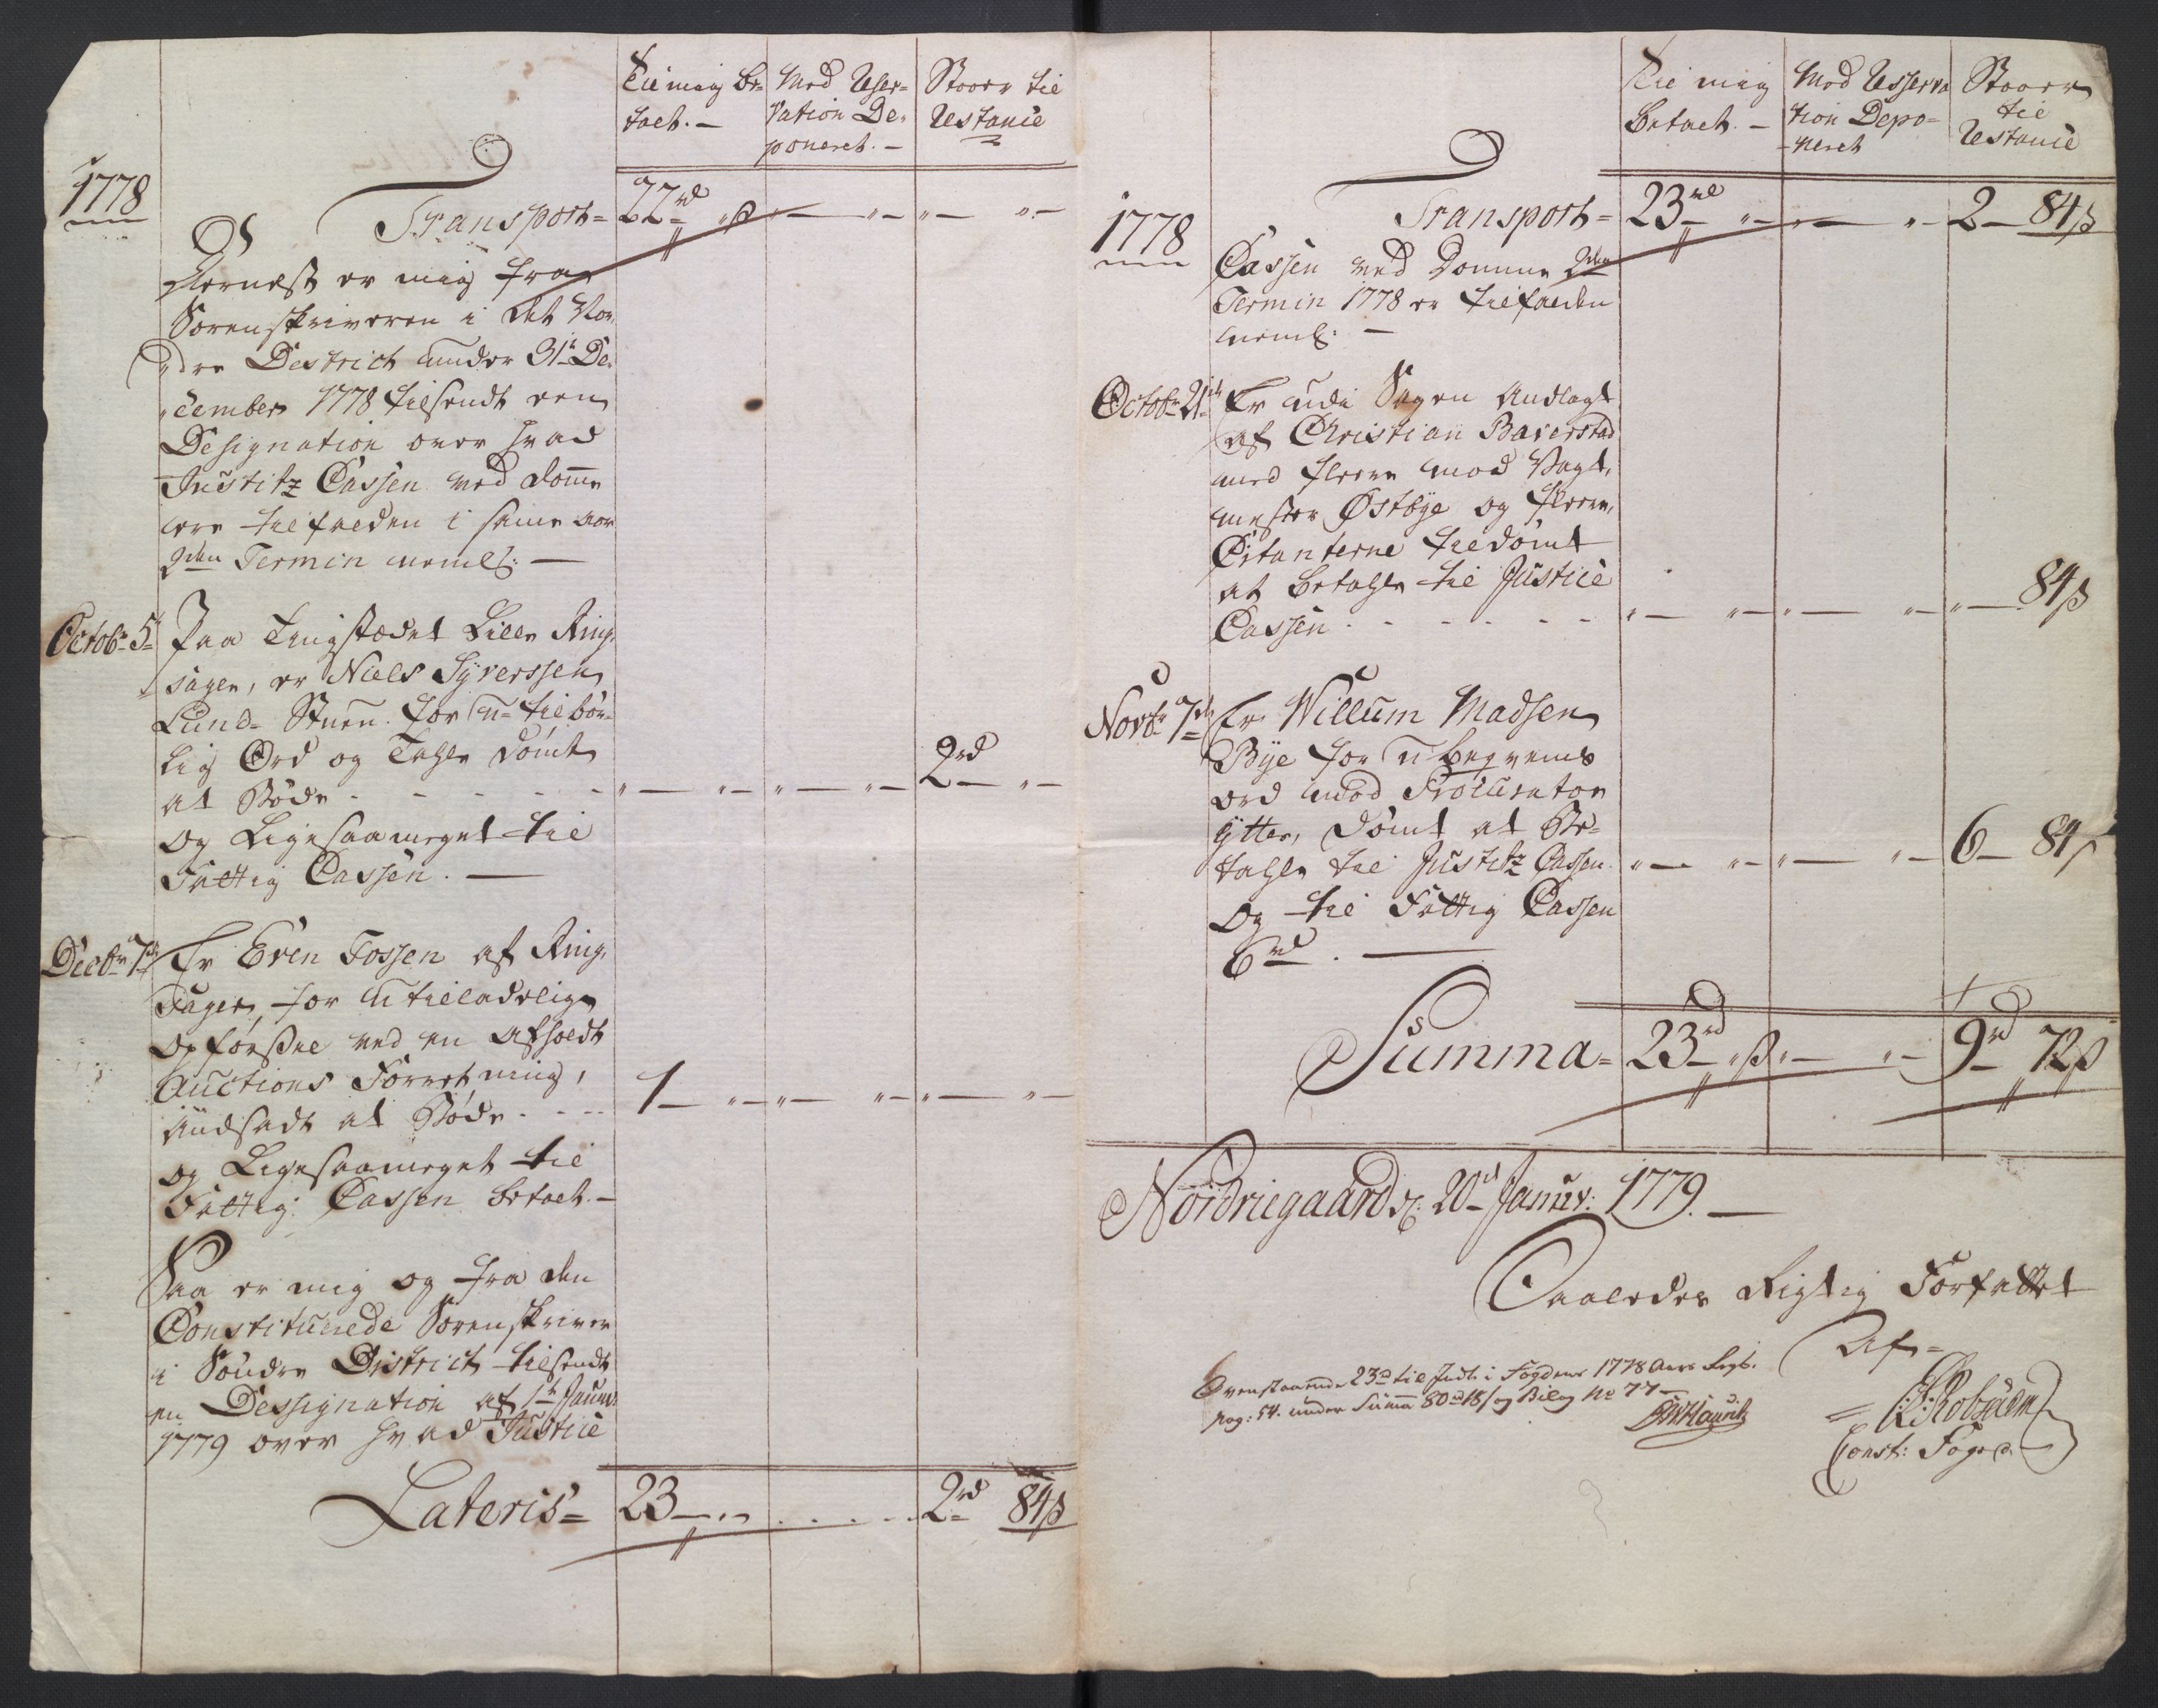 Til mig be-
talt. -
Mod Reser-
vation De-
poneret. -
Staaer til
Restance
1778
Transport = 22 rd „ ß „ — „ — „ — „ —
Hernest er mig fra
Sorenskriveren i det Nor-
dre Destrict under 31te De-
cember 1778 tilsendt een
Designation over hvad
Justitz Cassen ved domme
ere tilfalden i samme aar
2den Termin neml: —
Octobr 5te Paa Tingstædet Lille Ring-
sager, er Niels Syverssen
Lund- Stuen for U-tilbør-
lig Ord og Tahle dømt
at Bøde - - - - - „ — „ — „ — „ — 2 rd — „ —
og Ligesaameget til
Fattig Cassen. —
Decbr 7de Er Even Fossen af Ring-
sager, for Utilladelige
Opførsel ved en afholdt
Auctions Forretning,
Andsadt at Bøde - - - 1 — „ — „ — „ — „ — „ —
og Ligesaameget til
Fattig Cassen betalt. —
Saa er mig og fra den
Constituerede Sorenskriver
i Søndre District tilsendt
en Dessignation af 1te Janua:
1779 over hvad Justice
Lateris = 23 — „ — . . . . . 2 rd 84 ß
Til mig
betalt. —
Mod Resserva
tion Depo-
neret
Staaer
til
Restance
1778
Transport = 23 rd „ — „ — „ — 2 — 84 ß
Cassen ved Domme 2den
Termin 1778 er tilfalden
neml: —
Octobr 21de Er udi Sagen Andlagt
af Christian Baverstad
med fleere mod Vagt-
mester Østbye og fleere,
Citanterne tildømt
at betahle til Justice
Cassen - - - - - - „ — „ — „ — „ — „ — 84 ß
Novbr 7de Er Willum Madsen
Bye for Ubeqvems
ord mod Procurator
Ytter, dømt at Be-
tahle til Justitz Cassen. „ — „ — „ — „ — 6 — 84 ß
Og til Fattig Cassen
6 rd. —
Summa = 23 rd „ ß „ — „ — 9 rd 72 ß
Nordriegaard d: 20de Januar: 1779. —
Saaledes Rigtig Forfattet
Af =
Ovenstaaende 23 rd til Indt: i Fogdens 1778 Aars Regb.
pag: 54. under Summa 80 rd 18 ß og Bilag No 77 —
Robsahm
Const: Foged